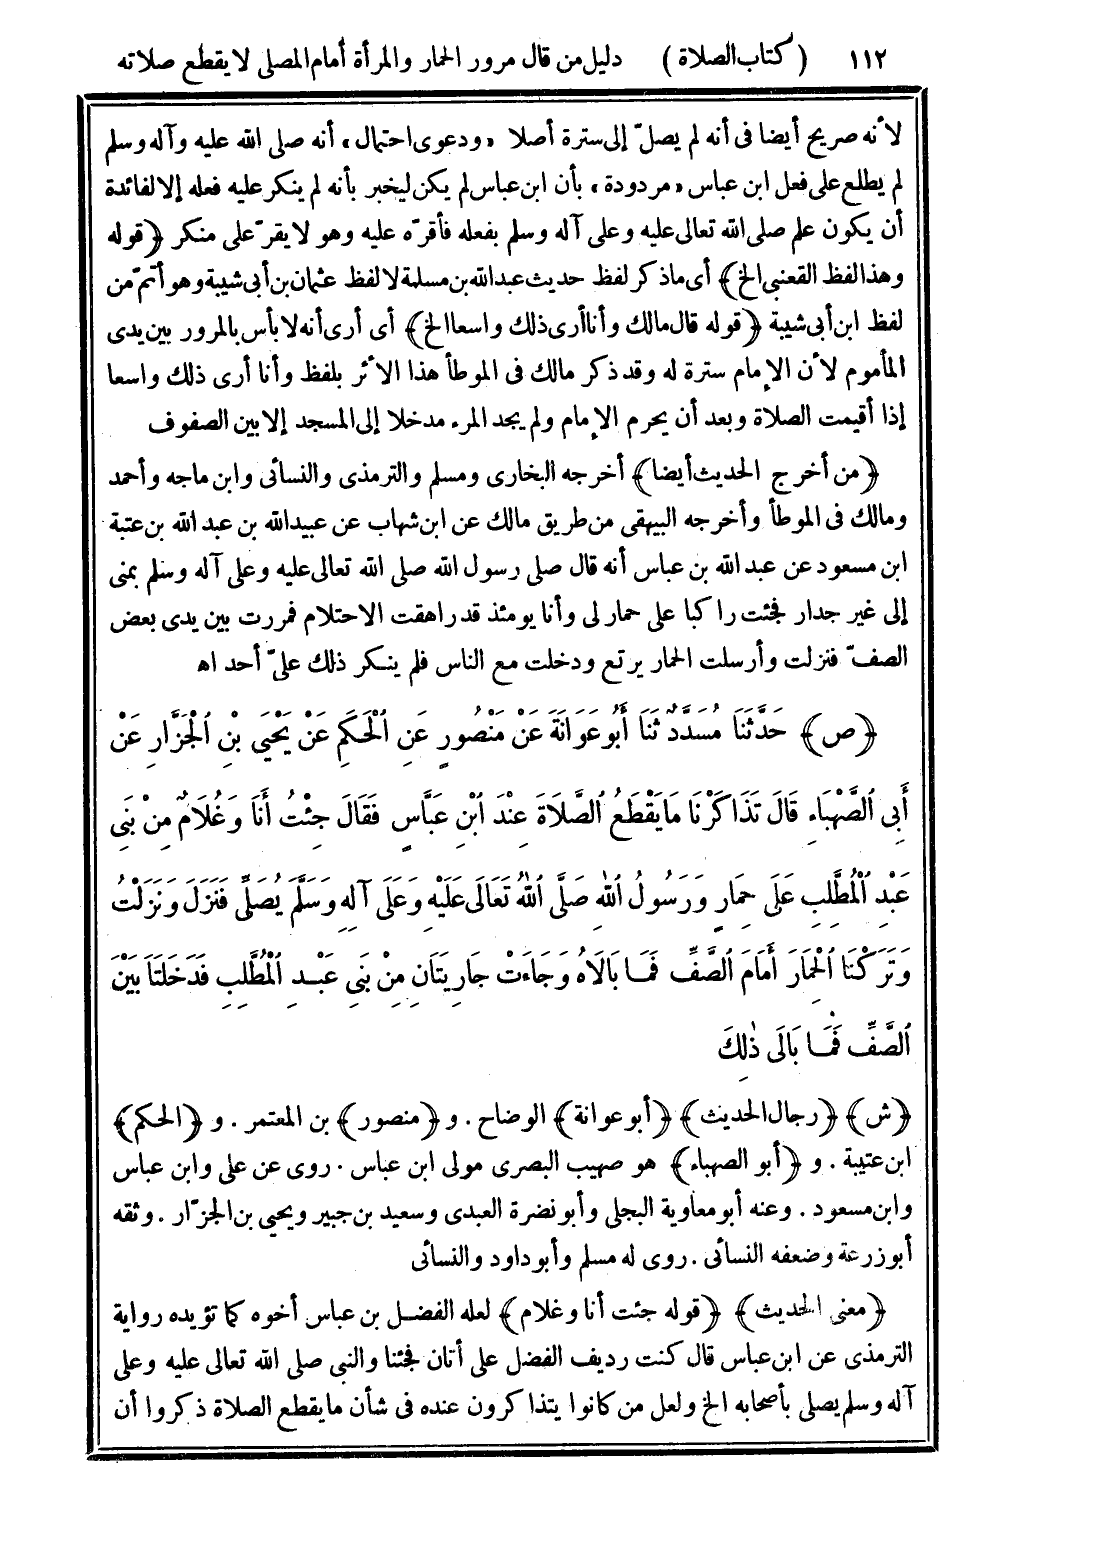 ١١٢ (كتاب الصلاة) دليل من قال مرور الحمار والمرأة أمام المصلى لا يقطع صلاته
لأنه صريح أيضا فى أنه لم يصلّ إلى سترة أصلا «ودعوى احتمال» أنه صلى الله عليه وآله وسلم
لم يطلع على فعل ابن عباس «مردودة» بأن ابن عباس لم يكن ليخبر بأنه لم ينكر عليه فعله إلا لفائدة
أن يكون علم صلى الله تعالى عليه وعلى آله وسلم بفعله فأقرّه عليه وهو لا يقرّ على منكر ﴿قوله
وهذا لفظ القعنبى الخ﴾ أى ما ذكر لفظ حديث عبد الله بن مسلمة لا لفظ عثمان بن أبى شيبة وهو أتمّ من
لفظ ابن أبى شيبة ﴿قوله قال مالك وأنا أرى ذلك واسعا الخ﴾ أى أرى أنه لا بأس بالمرور بين يدى
المأموم لأن الإمام سترة له وقد ذكر مالك فى الموطأ هذا الأثر بلفظ وأنا أرى ذلك واسعا
إذا أقيمت الصلاة وبعد أن يحرم الإمام ولم يجد المرء مدخلا إلى المسجد إلا بين الصفوف
﴿من أخرج الحديث أيضا﴾ أخرجه البخارى ومسلم والترمذى والنسائى وابن ماجه وأحمد
ومالك فى الموطأ وأخرجه البيهقى من طريق مالك عن ابن شهاب عن عبيد الله بن عبد الله بن عتبة
ابن مسعود عن عبد الله بن عباس أنه قال صلى رسول الله صلى الله تعالى عليه وعلى آله وسلم بمنى
إلى غير جدار فجئت راكبا على حمار لى وأنا يومئذ قد راهقت الاحتلام فمررت بين يدى بعض
الصفّ فنزلت وأرسلت الحمار يرتع ودخلت مع الناس فلم ينكر ذلك علىّ أحد اه
﴿ص﴾ حَدَّثَنَا مُسَدَّدٌ ثَنَا أَبُو عَوَانَةَ عَنْ مَنْصُورٍ عَنِ ٱلْحَكَمِ عَنْ يَحْيَى بْنِ ٱلْجَزَّارِ عَنْ
أَبِى ٱلصَّهْبَاءِ قَالَ تَذَاكَرْنَا مَا يَقْطَعُ ٱلصَّلَاةَ عِنْدَ ٱبْنِ عَبَّاسٍ فَقَالَ جِئْتُ أَنَا وَغُلَامٌ مِنْ بَنِى
عَبْدِ ٱلْمُطَّلِبِ عَلَى حِمَارٍ وَرَسُولُ ٱللهِ صَلَّى ٱللهُ تَعَالَى عَلَيْهِ وَعَلَى آلِهِ وَسَلَّمَ يُصَلِّى فَنَزَلَ وَنَزَلْتُ
وَتَرَكْنَا ٱلْحِمَارَ أَمَامَ ٱلصَّفِّ فَمَا بَالَاهُ وَجَاءَتْ جَارِيَتَانِ مِنْ بَنِى عَبْدِ ٱلْمُطَّلِبِ فَدَخَلَتَا بَيْنَ
ٱلصَّفِّ فَمَا بَالَى ذٰلِكَ
﴿ش﴾ ﴿رجال الحديث﴾ ﴿أبو عوانة﴾ الوضاح. و ﴿منصور﴾ بن المعتمر. و ﴿الحكم﴾
ابن عتيبة. و ﴿أبو الصهباء﴾ هو صهيب البصرى مولى ابن عباس. روى عن على وابن عباس
وابن مسعود. وعنه أبو معاوية البجلى وأبو نضرة العبدى وسعيد بن جبير ويحيى بن الجزّار. وثقه
أبو زرعة وضعفه النسائى. روى له مسلم وأبو داود والنسائى
﴿معنى الحديث﴾ ﴿قوله جئت أنا وغلام﴾ لعله الفضل بن عباس أخوه كما تؤيده رواية
الترمذى عن ابن عباس قال كنت رديف الفضل على أتان فجئنا والنبى صلى الله تعالى عليه وعلى
آله وسلم يصلى بأصحابه الخ ولعل من كانوا يتذاكرون عنده فى شأن ما يقطع الصلاة ذكروا أن